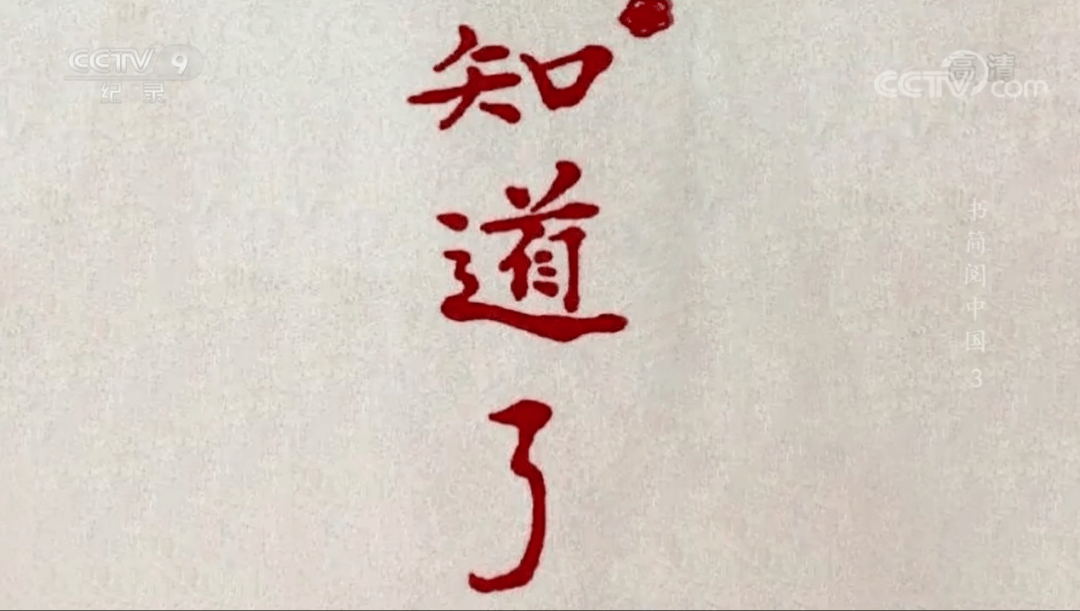 CCTV 9
纪录
高清
CCTV.com
知道了
书简阅中国 3